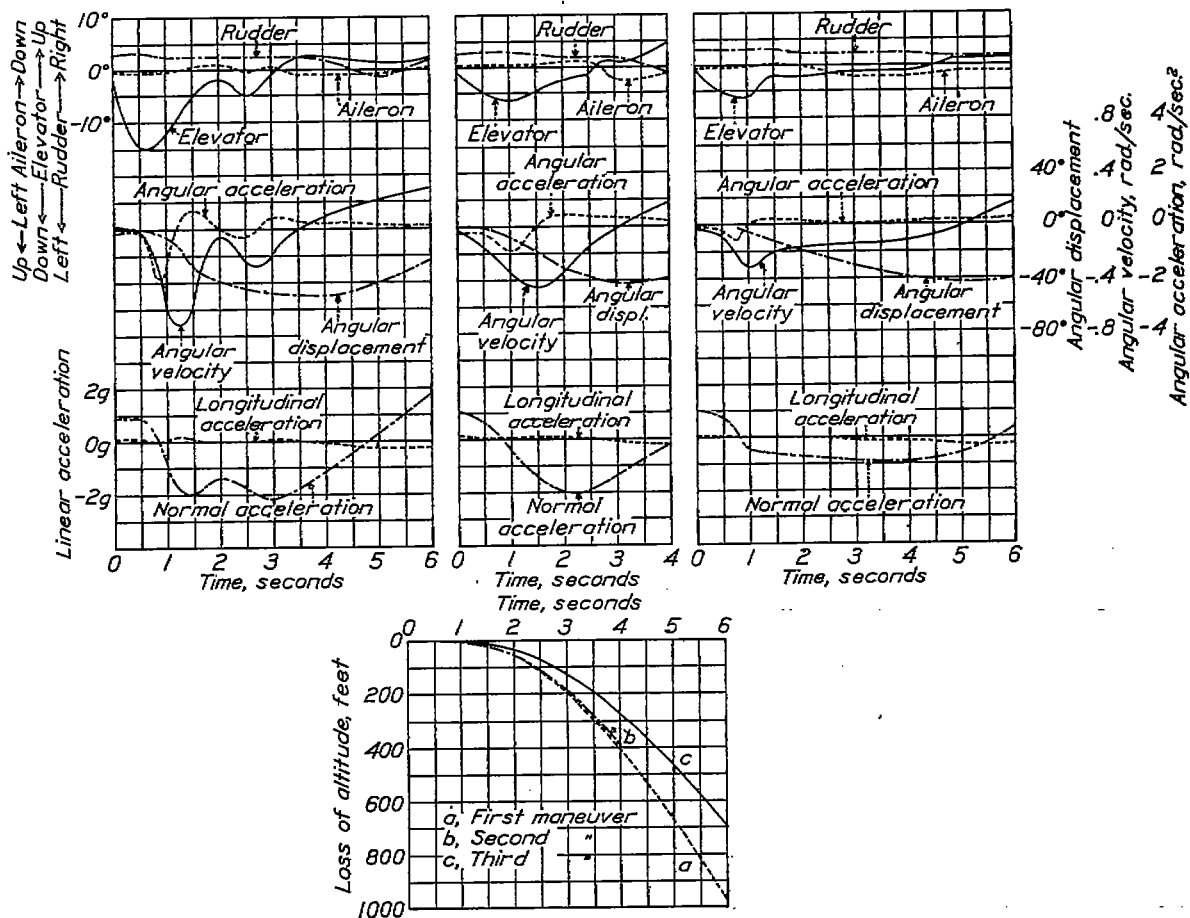 Up<-Left Aileron->Down
Down<-Elevator->Up
Left<-Rudder->Right
10°
0°
-10°
Rudder
Aileron
Elevator
Angular acceleration
Angular velocity
Angular displacement
Linear acceleration
2g
0g
-2g
Longitudinal acceleration
Normal acceleration
0 1 2 3 4 5 6
Time, seconds
Rudder
Elevator
Aileron
Angular acceleration
Angular velocity
Angular displ.
Longitudinal acceleration
Normal acceleration
0 1 2 3 4
Time, seconds
Rudder
Elevator
Aileron
Angular acceleration
Angular velocity
Angular displacement
Longitudinal acceleration
Normal acceleration
0 1 2 3 4 5 6
Time, seconds
40°
0°
-40°
-80°
Angular displacement
.8
.4
0
-.4
-.8
Angular velocity, rad/sec.
4
2
0
-2
-4
Angular acceleration, rad/sec.²
Time, seconds
0 1 2 3 4 5 6
Loss of altitude, feet
0
200
400
600
800
1000
b
c
a
a, First maneuver
b, Second "
c, Third "